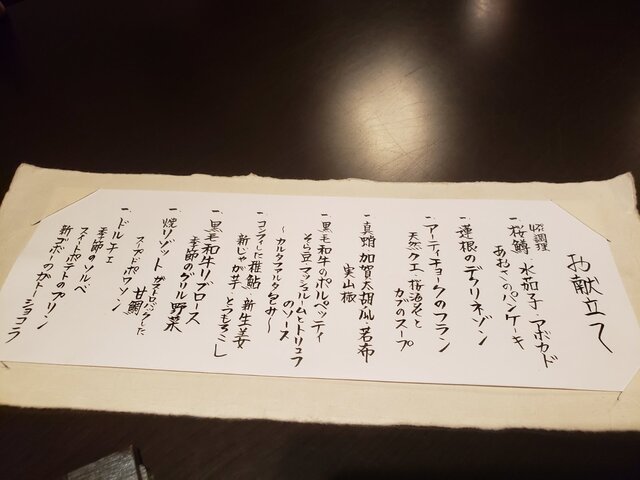 お献立て
一、桜鱒 水茄子・アボカド
あおさのパンケーキ
一、蓮根のデクリネゾン
一、アーティチョークのフラン
天然クエ、桜海老と
カブのスープ
一、真蛸 加賀太胡瓜、若布
実山椒
一、黒毛和牛のポルペッティ
そら豆マッシュルームとトリュフ
のソース
～カルタファルタ包み～
一、コンフィした稚鮎 新生姜
新じゃが芋、とうもろこし
一、黒毛和牛リブロース
季節のグリル野菜
一、焼リゾット 甘鯛
スープドポワソン
一、ドルチェ
季節のソルベ
スイートポテトのプリン
新ゴボーのガトーショコラ